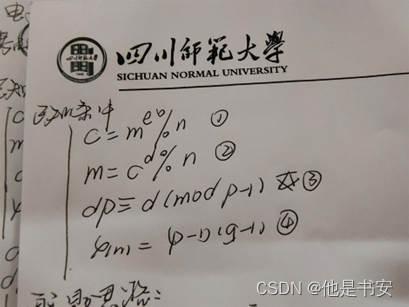 四川师范大学
SICHUAN NORMAL UNIVERSITY
已知条件
c = m^e % n ①
m = c^d % n ②
dp ≡ d (mod p-1) ③
φ(n) = (p-1)(q-1) ④
CSDN @他是书安